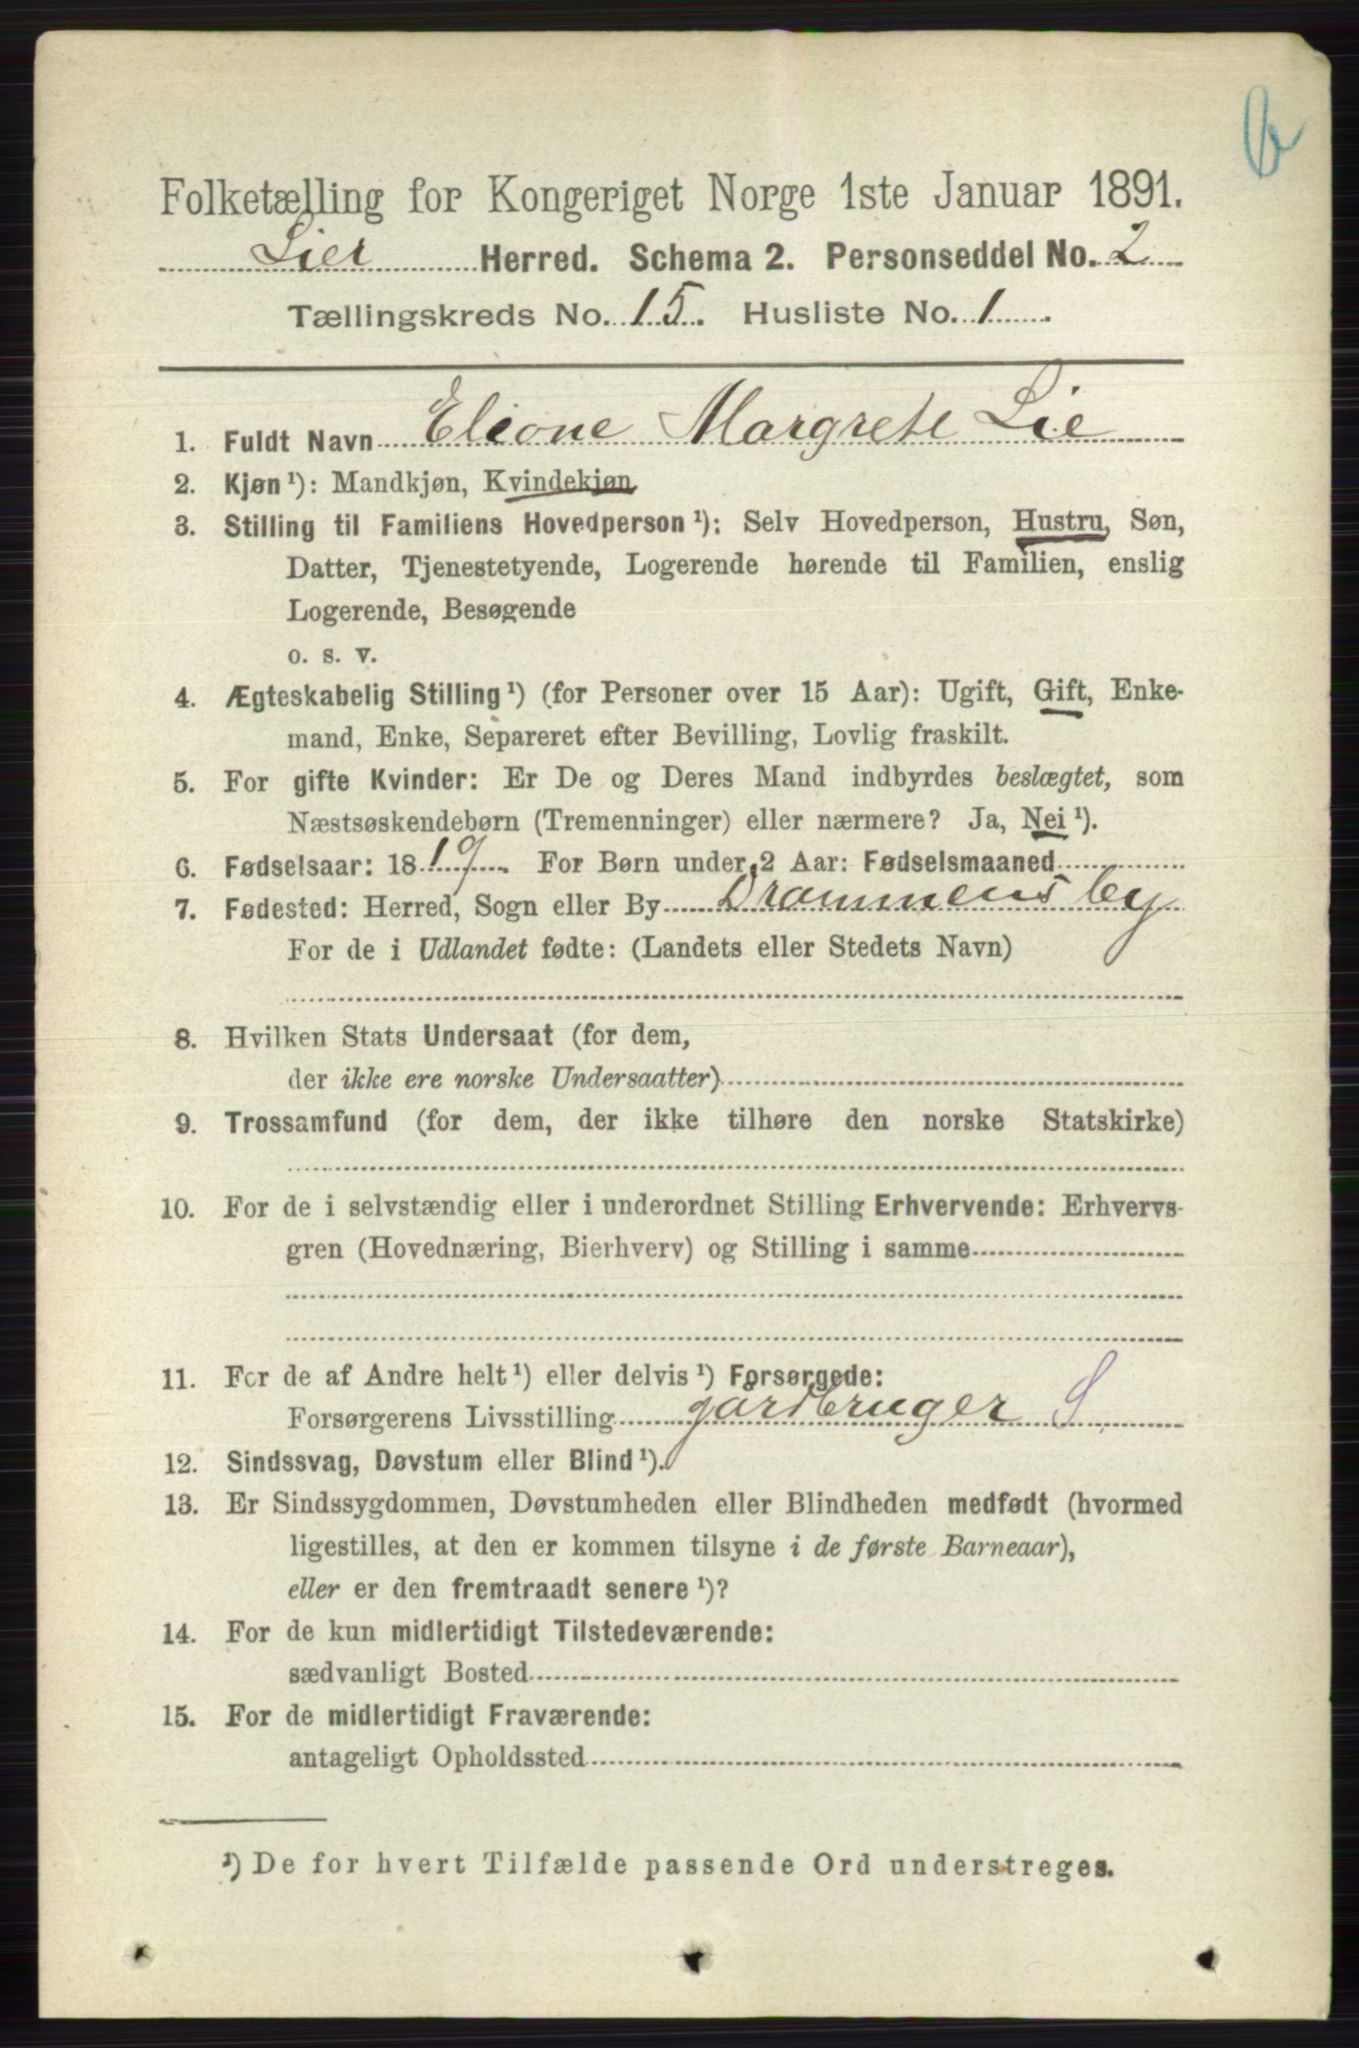 Folketælling for Kongeriget Norge 1ste Januar 1891.
Lier Herred. Schema 2. Personseddel No. 2
Tællingskreds No. 15. Husliste No. 1
1. Fuldt Navn Eleone Margrete Lie
2. Kjøn ¹): Mandkjøn, Kvindekjøn
3. Stilling til Familiens Hovedperson ¹): Selv Hovedperson, Hustru, Søn,
Datter, Tjenestetyende, Logerende hørende til Familien, enslig
Logerende, Besøgende
o. s. v.
4. Ægteskabelig Stilling ¹) (for Personer over 15 Aar): Ugift, Gift, Enke-
mand, Enke, Separeret efter Bevilling, Lovlig fraskilt.
5. For gifte Kvinder: Er De og Deres Mand indbyrdes beslægtet, som
Næstsøskendebørn (Tremenninger) eller nærmere? Ja, Nei ¹).
6. Fødselsaar: 1819. For Børn under 2 Aar: Fødselsmaaned
7. Fødested: Herred, Sogn eller By Drammens by
For de i Udlandet fødte: (Landets eller Stedets Navn)
8. Hvilken Stats Undersaat (for dem,
der ikke ere norske Undersaatter)
9. Trossamfund (for dem, der ikke tilhøre den norske Statskirke)
10. For de i selvstændig eller i underordnet Stilling Erhvervende: Erhvervs-
gren (Hovednæring, Bierhverv) og Stilling i samme
11. For de af Andre helt ¹) eller delvis ¹) Forsørgede:
Forsørgerens Livsstilling gårdbruger S
12. Sindssvag, Døvstum eller Blind ¹).
13. Er Sindssygdommen, Døvstumheden eller Blindheden medfødt (hvormed
ligestilles, at den er kommen tilsyne i de første Barneaar),
eller er den fremtraadt senere ¹)?
14. For de kun midlertidigt Tilstedeværende:
sædvanligt Bosted
15. For de midlertidigt Fraværende:
antageligt Opholdssted
¹) De for hvert Tilfælde passende Ord understreges.